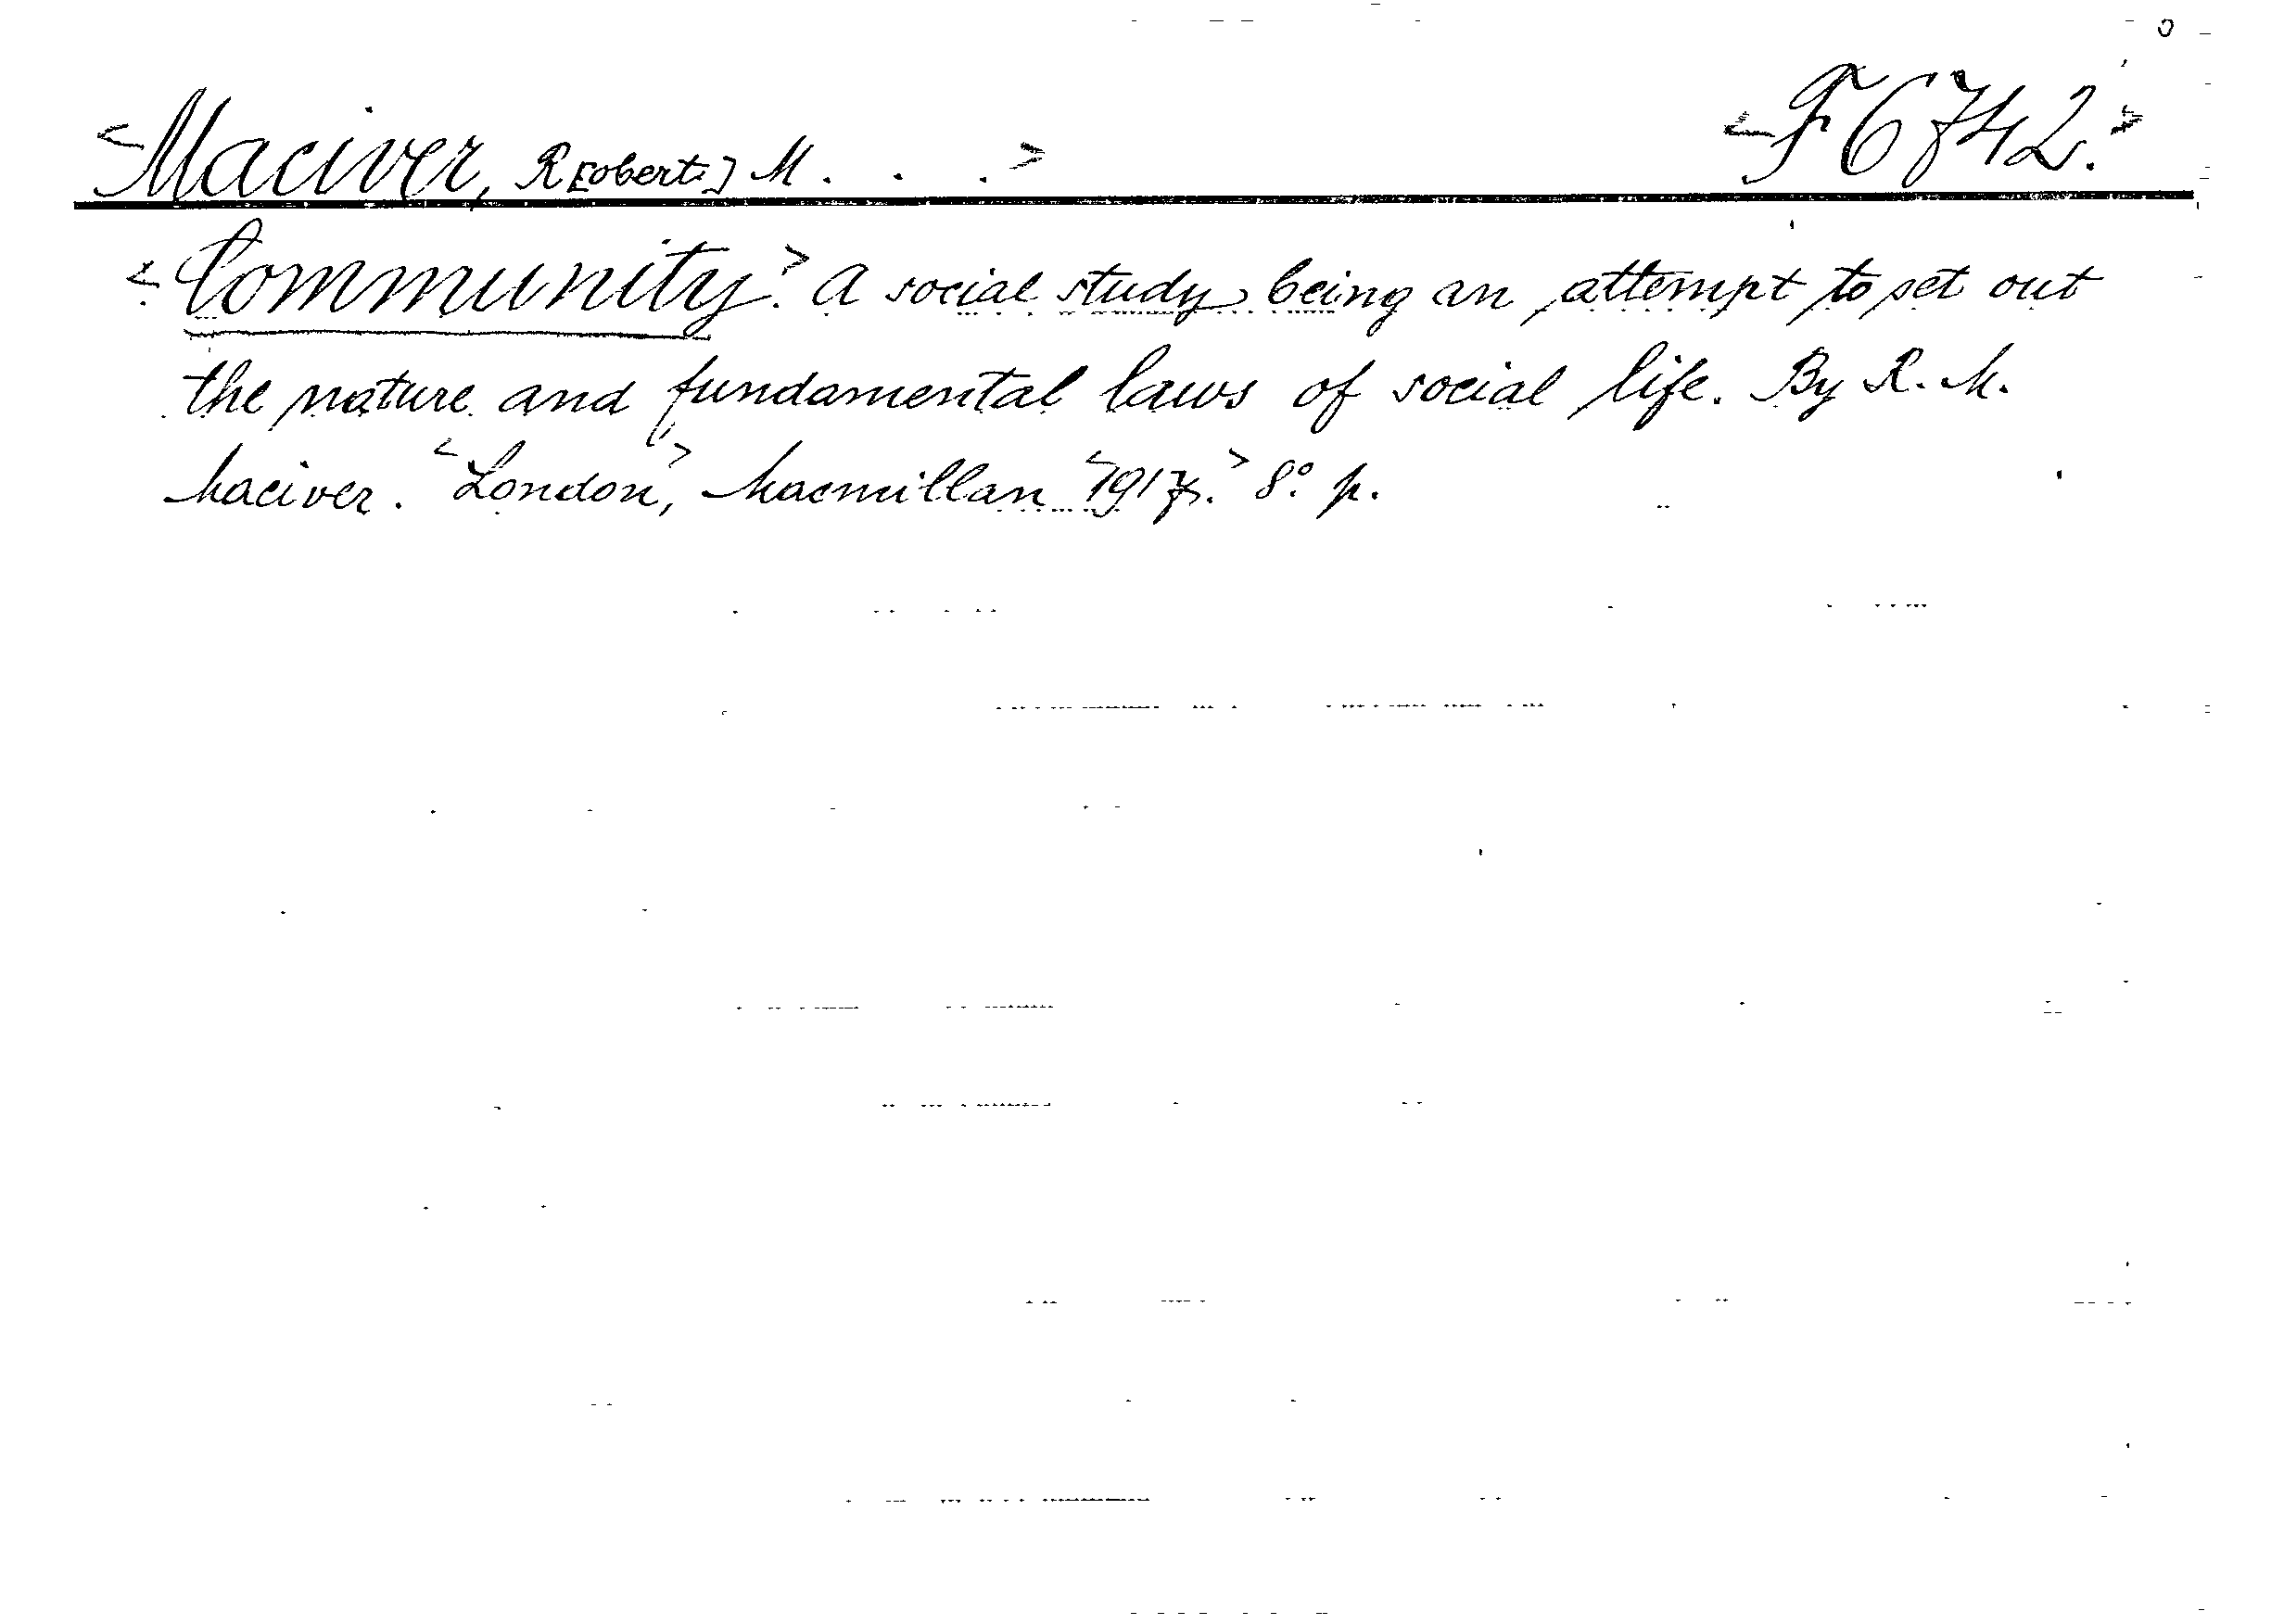 <Maciver, R[obert.] M. . .> <F6742.>
<Community.> A social study being an attempt to set out
the nature and fundamental laws of social life. By R. M.
Maciver. <London,> Macmillan <1917.> 8.° p.